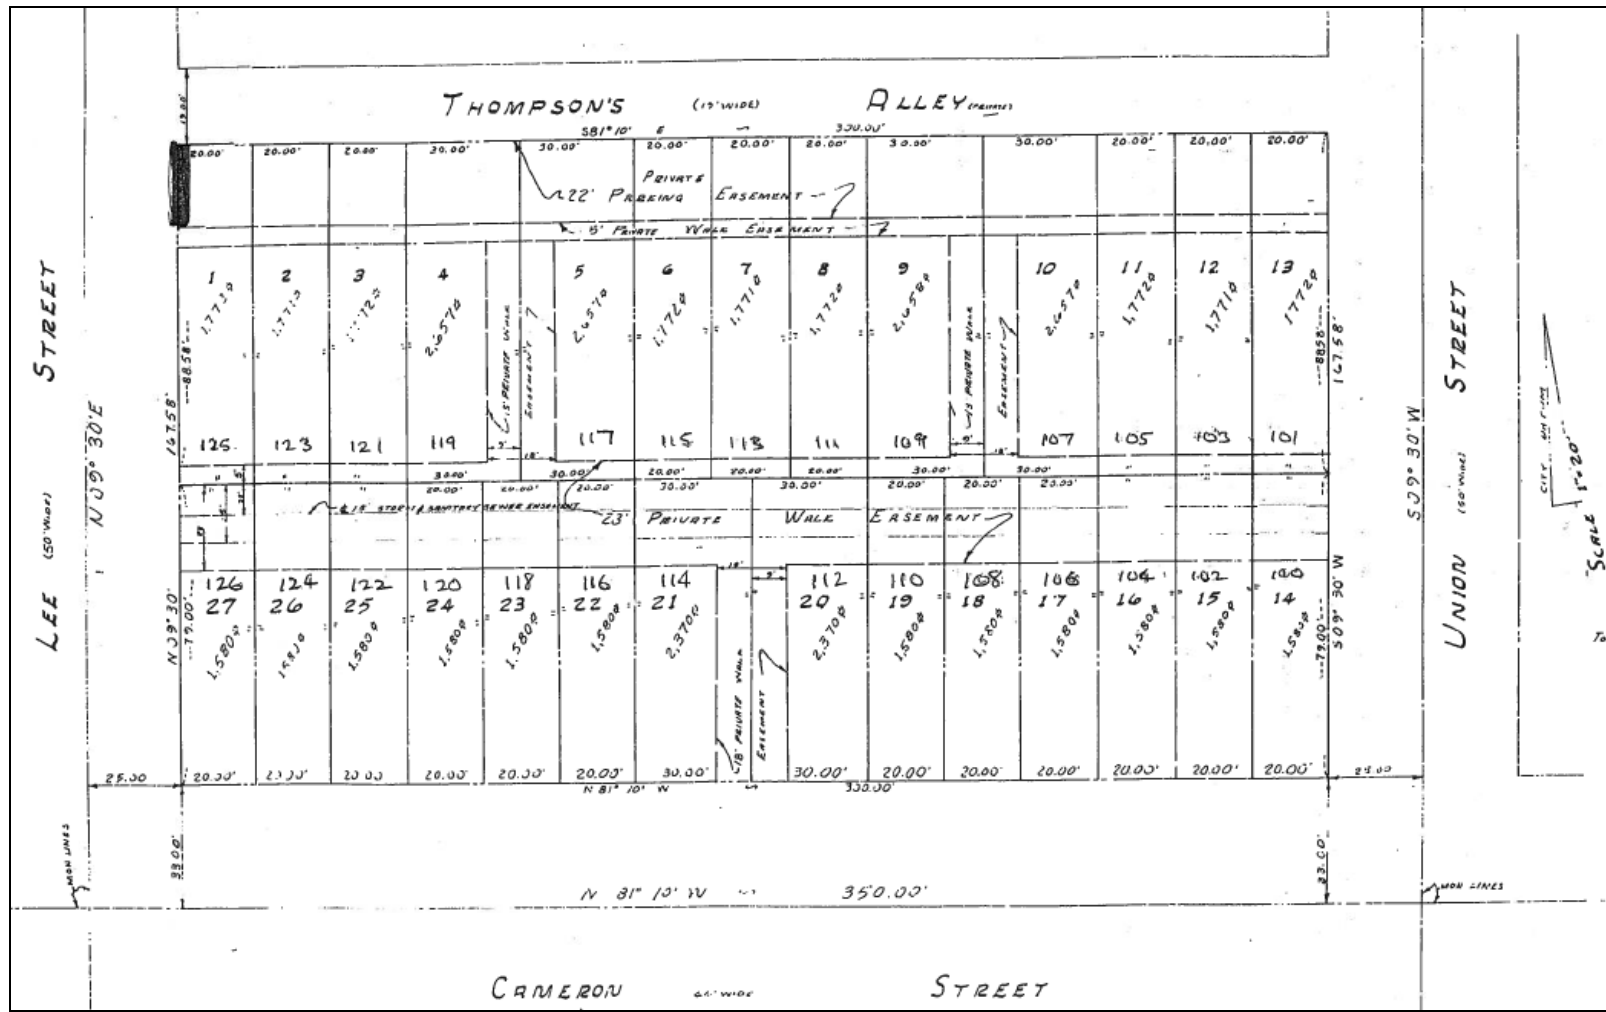 THOMPSON'S (19' WIDE) ALLEY (PRIVATE)
19.00'
S81°10' E ~ 300.00'
20.00' 20.00' 20.00' 30.00' 30.00' 20.00' 20.00' 20.00' 30.00' 30.00' 20.00' 20.00' 20.00'
PRIVATE
22' PARKING EASEMENT
5' PRIVATE WALK EASEMENT
1 2 3 4 5 6 7 8 9 10 11 12 13
1,773 1,771 2,657 2,657 1,772 1,771 1,772 2,658 2,657 1,772 1,771 1772
15' PRIVATE WALK EASEMENT
EASEMENT
88.58' 88.58'
167.58' 167.58'
125 123 121 119 117 115 113 111 109 107 105 103 101
9' 18' 9' 18'
" " " 30.00' 30.00' 20.00' 20.00' 20.00' 30.00' 30.00' " " "
" " " 20.00' 20.00' 20.00' 30.00' 30.00' 20.00' 20.00' 20.00'
15' STORM & SANITARY SEWER EASEMENT
23' PRIVATE WALK EASEMENT
18' 9'
126 124 122 120 118 116 114 112 110 108 106 104 102 100
27 26 25 24 23 22 21 20 19 18 17 16 15 14
1,580 1,580 1,580 1,580 1,580 1,580 2,370 2,370 1,580 1,580 1,580 1,580 1,580 1,580
79.00' 79.00'
18' PRIVATE WALK
EASEMENT
N 09° 30' S 09° 30' W
25.00 20.00' 20.00' 20.00 20.00' 20.00' 20.00' 30.00' 30.00' 20.00' 20.00' 20.00' 20.00' 20.00' 20.00' 25.00
N 81° 10' W ~ 300.00'
33.00' 33.00'
MON LINES
N 81° 10' W ~ 350.00'
MON LINES
CAMERON 66' WIDE STREET
LEE (50' WIDE) STREET
N 09° 30' E
UNION (50' WIDE) STREET
S 09° 30' W
CITY
SCALE 1" = 20'